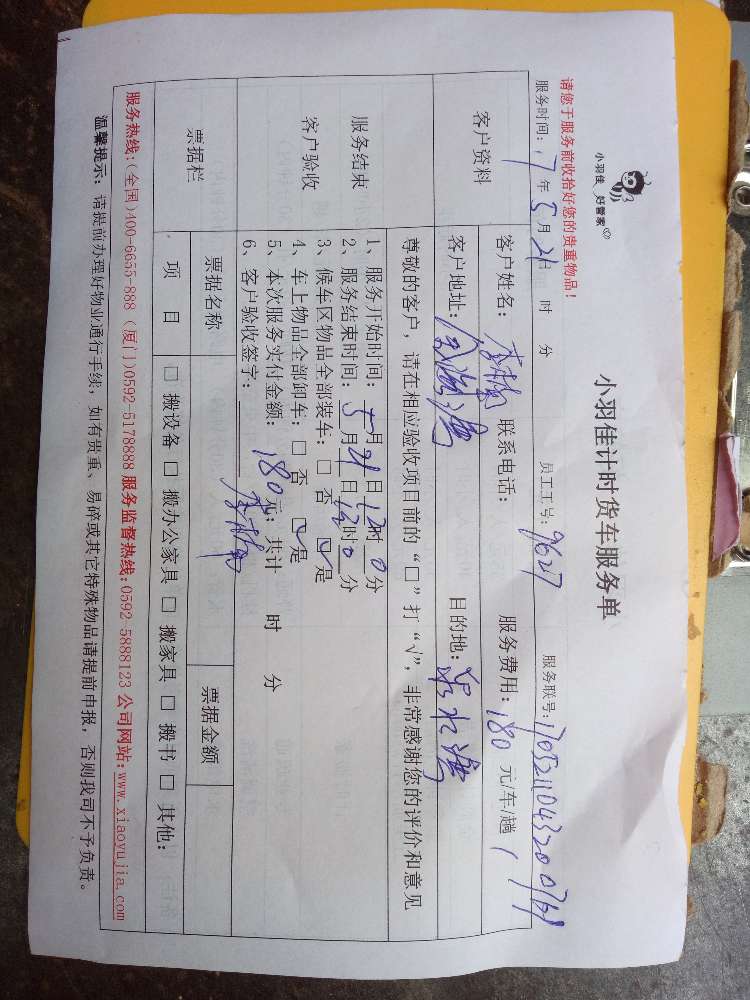 小羽佳 好管家
小羽佳计时货车服务单
请您于服务前收拾好您的贵重物品！
服务时间：17年5月21日 时 分 员工工号：9627 服务联号：
客户资料
客户姓名： 联系电话： 服务费用：180元/车/趟
客户地址： 目的地：
尊敬的客户，请在相应验收项目前的“□”打“√”，非常感谢您的评价和意见
服务结束
客户验收
1、服务开始时间：5月21日12时0分
2、服务结束时间：5月21日13时0分
3、候车区物品全部装车：□ 否 ☑ 是
4、车上物品全部卸车：□ 否 ☑ 是
5、本次服务实付金额：180元；共计 时 分
6、客户验收签字：
票据栏
票据名称 票据金额
项 目 □ 搬设备 □ 搬办公家具 □ 搬家具 □ 搬书 □ 其他：
服务热线：(全国)400-6655-888 (厦门)0592-5178888 服务监督热线：0592-5888123 公司网站：www.xiaoyujia.com
温馨提示：请提前办理好物业通行手续，如有贵重、易碎或其它特殊物品请提前申报，否则我司不予负责。